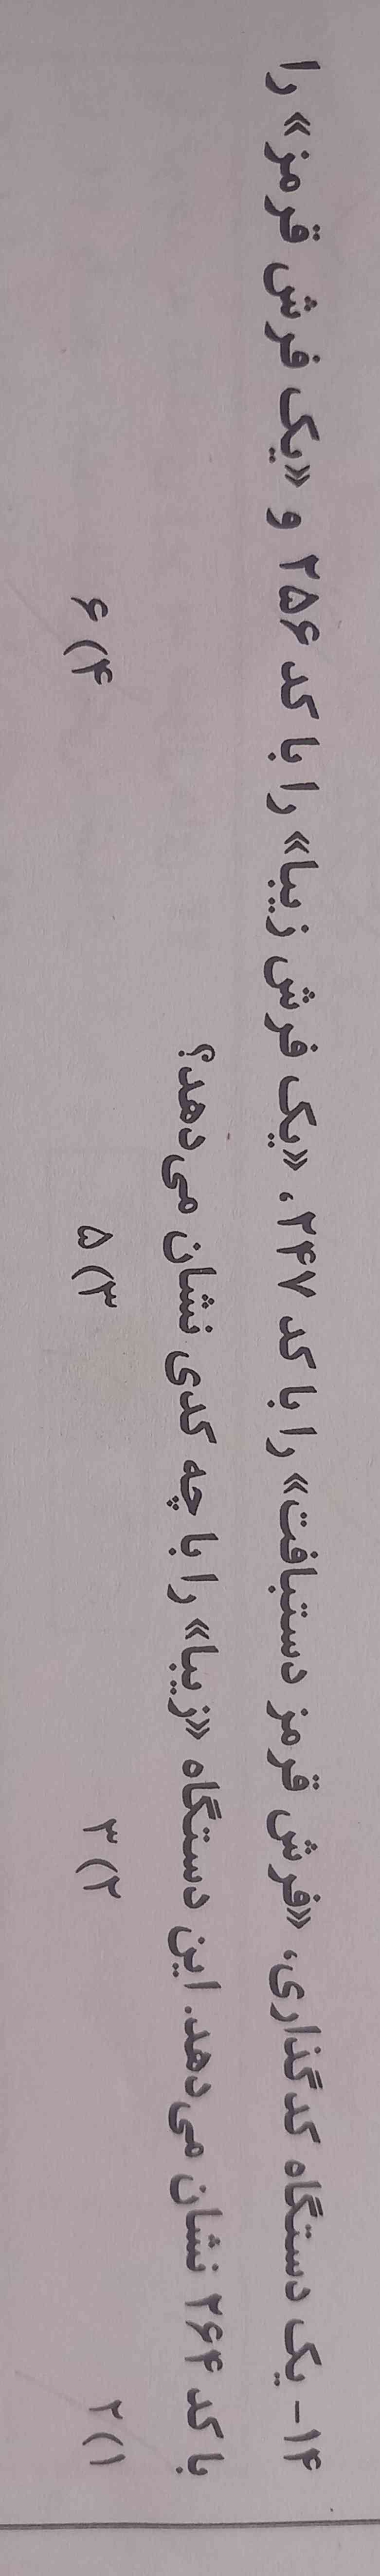 ۱۴- یک دستگاه کدگذاری، «فرش قرمز دستبافت» را با کد ۲۴۷، «یک فرش زیبا» را با کد ۲۵۶ و «یک فرش قرمز» را
با کد ۲۶۴ نشان می‌دهد. این دستگاه «زیبا» را با چه کدی نشان می‌دهد؟
۱) ۲ ۲) ۳ ۳) ۵ ۴) ۶